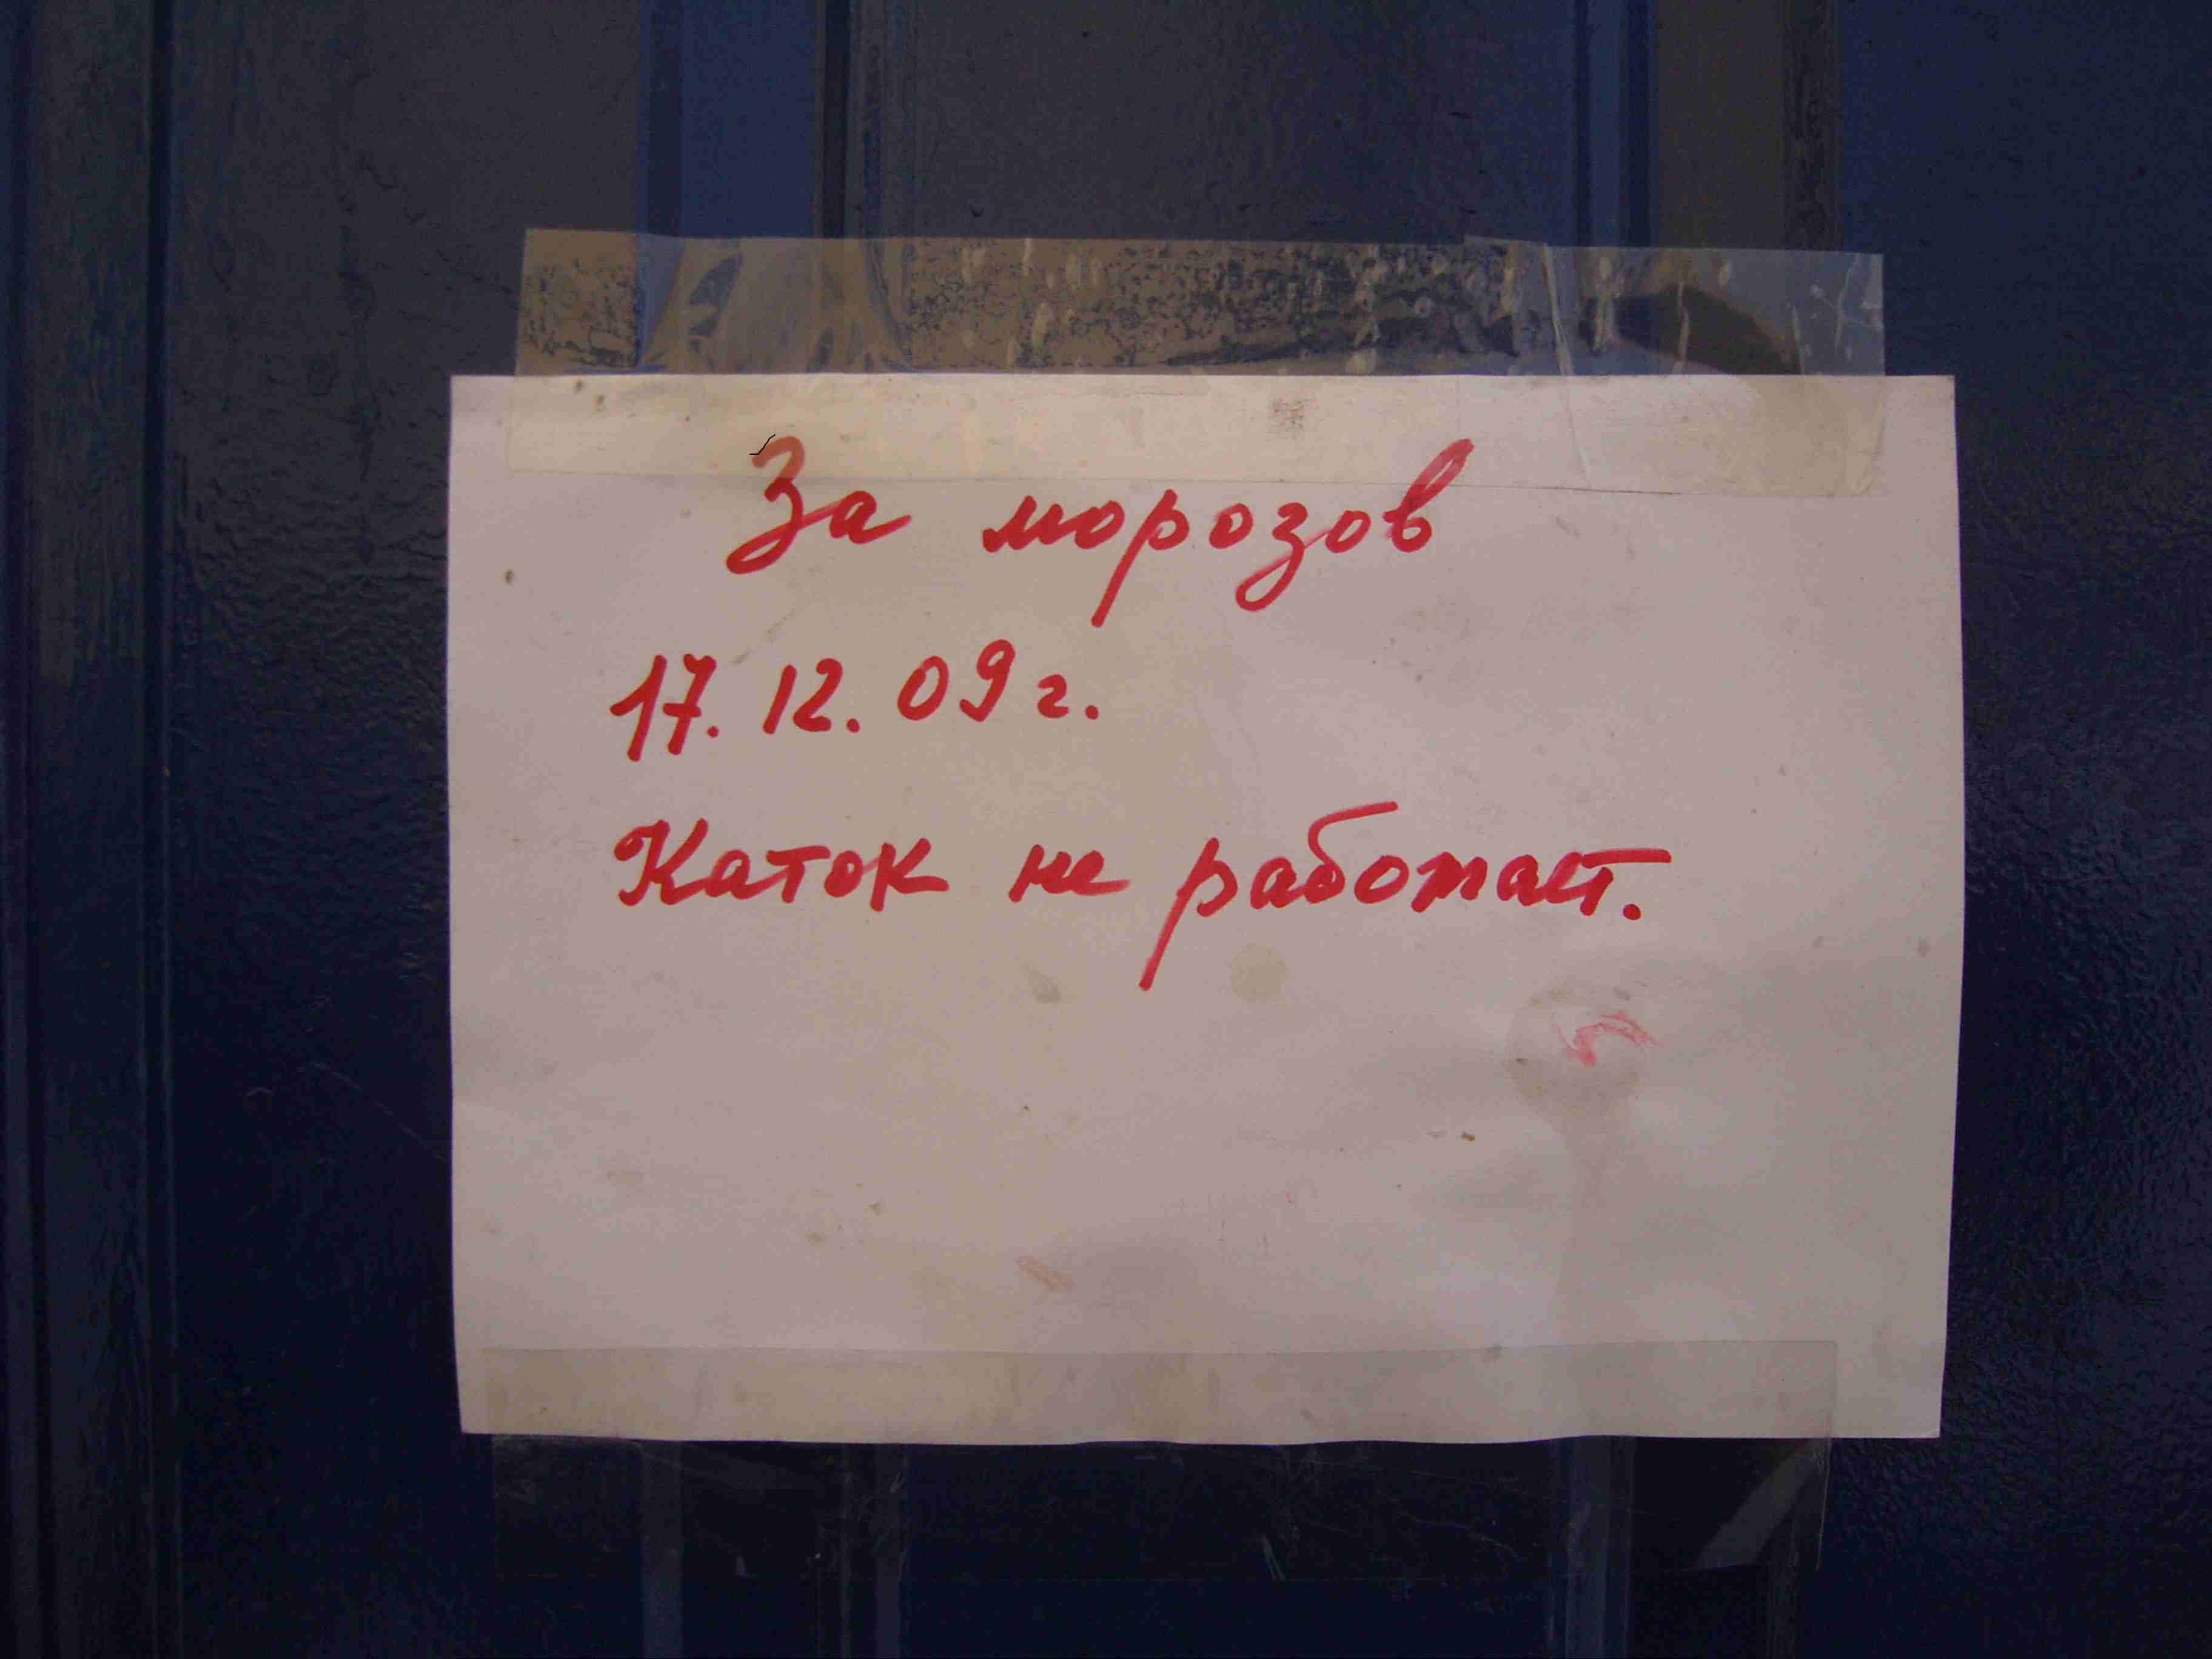 За морозов
17.12.09 г.
Каток не работает.